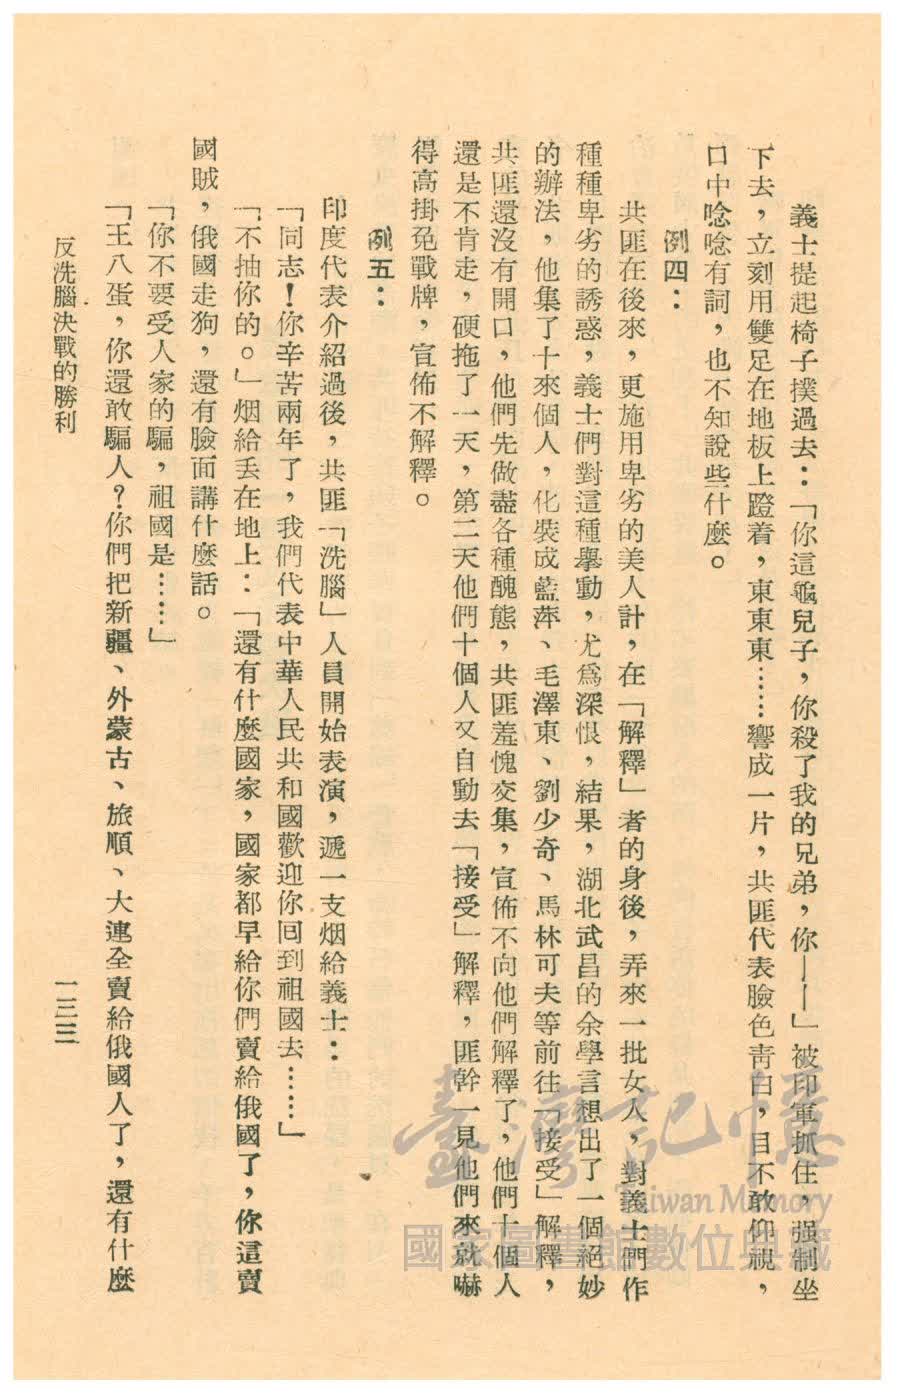 義士提起椅子撲過去：「你這龜兒子，你殺了我的兄弟，你——」被印軍抓住，强制坐
下去，立刻用雙足在地板上蹬着，東東東……響成一片，共匪代表臉色靑白，目不敢仰視，
口中唸唸有詞，也不知說些什麼。
例四：
共匪在後來，更施用卑劣的美人計，在「解釋」者的身後，弄來一批女人，對義士們作
種種卑劣的誘惑，義士們對這種舉動，尤爲深恨，結果，湖北武昌的余學言想出了一個絕妙
的辦法，他集了十來個人，化裝成藍萍、毛澤東、劉少奇、馬林可夫等前往「接受」解釋，
共匪還沒有開口，他們先做盡各種醜態，共匪羞愧交集，宣佈不向他們解釋了，他們十個人
還是不肯走，硬拖了一天，第二天他們十個人又自動去「接受」解釋，匪幹一見他們來就嚇
得高掛免戰牌，宣佈不解釋。
例五：
印度代表介紹過後，共匪「洗腦」人員開始表演，遞一支烟給義士：
「同志！你辛苦兩年了，我們代表中華人民共和國歡迎你回到祖國去……」
「不抽你的。」烟給丢在地上：「還有什麼國家，國家都早給你們賣給俄國了，你這賣
國賊，俄國走狗，還有臉面講什麼話。
「你不要受人家的騙，祖國是……」
「王八蛋，你還敢騙人？你們把新疆、外蒙古、旅順、大連全賣給俄國人了，還有什麼
反洗腦決戰的勝利
一三三
臺灣記憶
Taiwan Memory
國家圖書館數位典藏